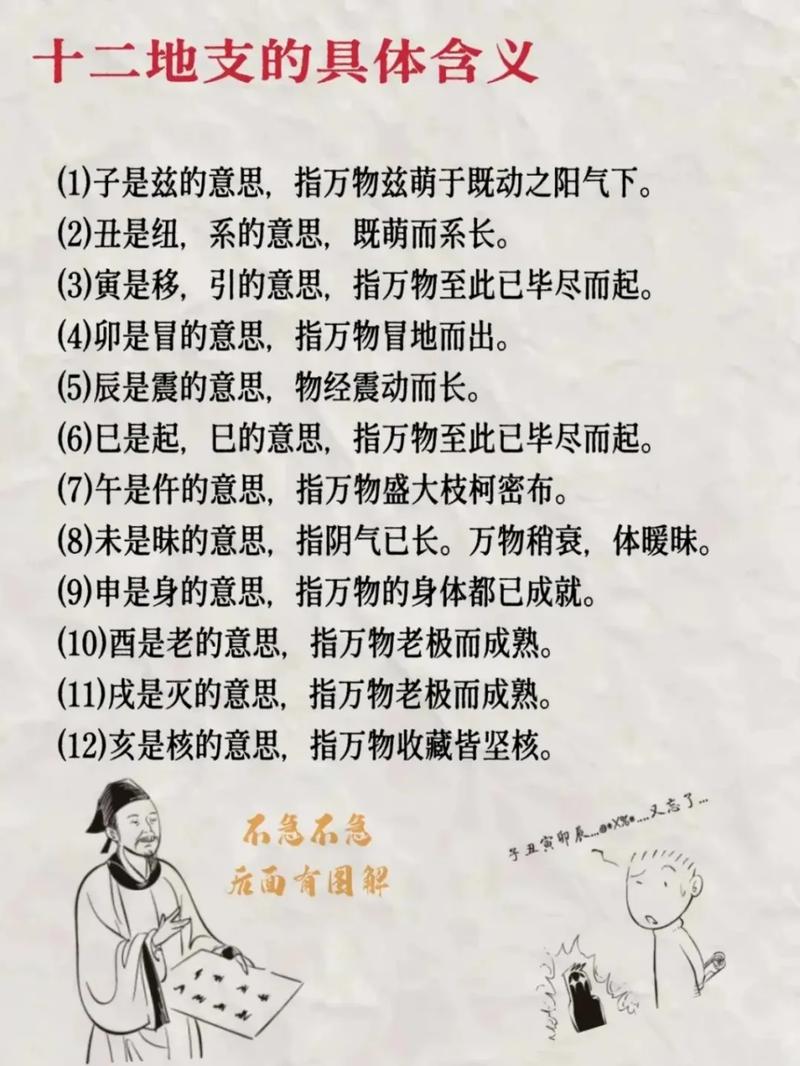 十二地支的具体含义
(1)子是兹的意思，指万物兹萌于既动之阳气下。
(2)丑是纽，系的意思，既萌而系长。
(3)寅是移，引的意思，指万物至此已毕尽而起。
(4)卯是冒的意思，指万物冒地而出。
(5)辰是震的意思，物经震动而长。
(6)巳是起，巳的意思，指万物至此已毕尽而起。
(7)午是仵的意思，指万物盛大枝柯密布。
(8)未是昧的意思，指阴气已长。万物稍衰，体暧昧。
(9)申是身的意思，指万物的身体都已成就。
(10)酉是老的意思，指万物老极而成熟。
(11)戌是灭的意思，指万物老极而成熟。
(12)亥是核的意思，指万物收藏皆坚核。
不急不急
后面有图解
子丑寅卯辰...@*X%*....又忘了...